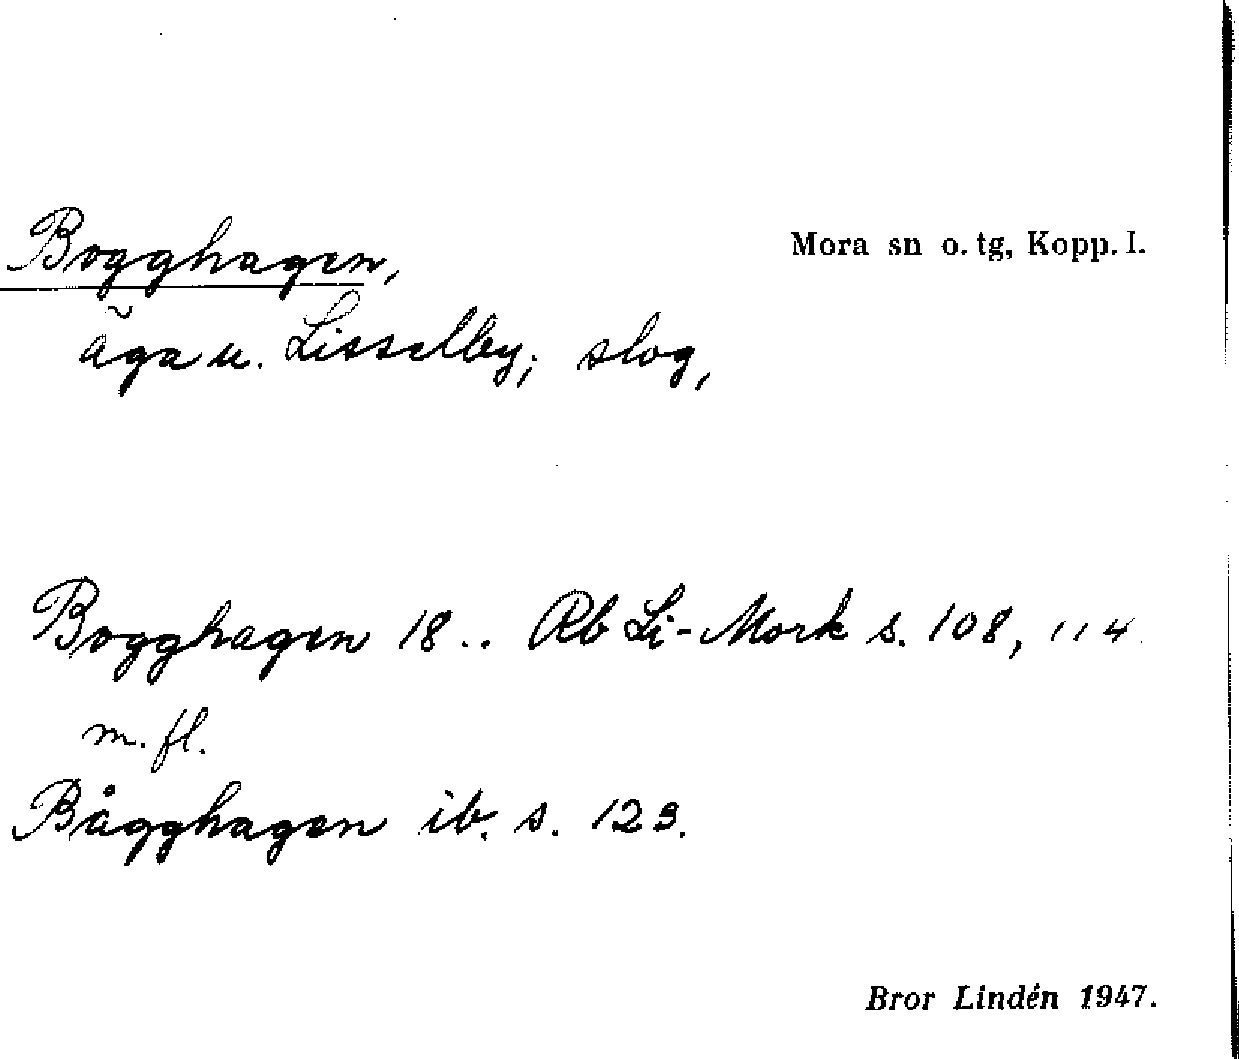 Bogghagen,
Mora sn o. tg, Kopp. l.
äga u. Lisselby; slog,
Bogghagen 18.. Rb Li-Mork s. 108, 114
m. fl.
Bågghagen ib. s. 123.
Bror Lindén 1947.